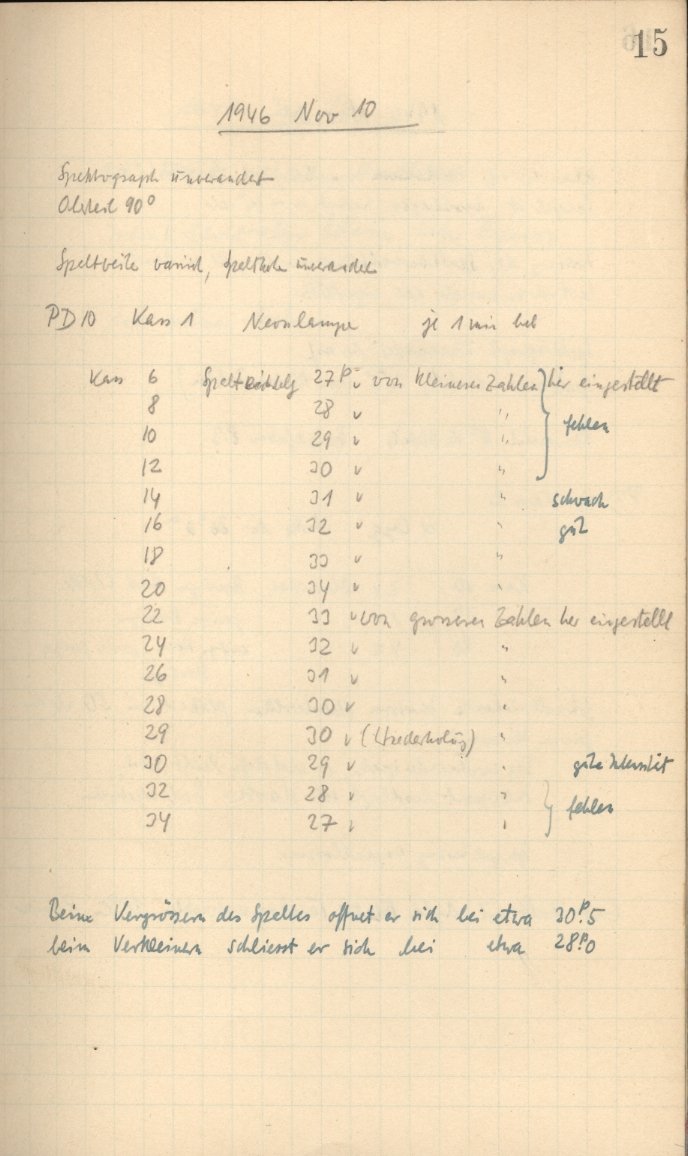 15
1946 Nov 10
Spektrograph unverändert
90°
Spaltbreite variiert, unverändert
PD 10 Kass 1 Neonlampe je 1 min bel
Kass 6 27 P v von kleineren Zahlen } her eingestellt
8 28 v " fehlen
10 29 v "
12 30 v "
14 31 v " schwach
16 32 v " gut
18 33 v "
20 34 v "
22 33 v von grösseren Zahlen her eingestellt
24 32 v "
26 31 v "
28 30 v "
29 30 v (Wiederholg) "
30 29 v " gute Intensität
32 28 v " } fehlen
34 27 v "
Beim Vergrössern des Spaltes öffnet er sich bei etwa 30P.5
beim Verkleinern schliesst er sich bei etwa 28P.0